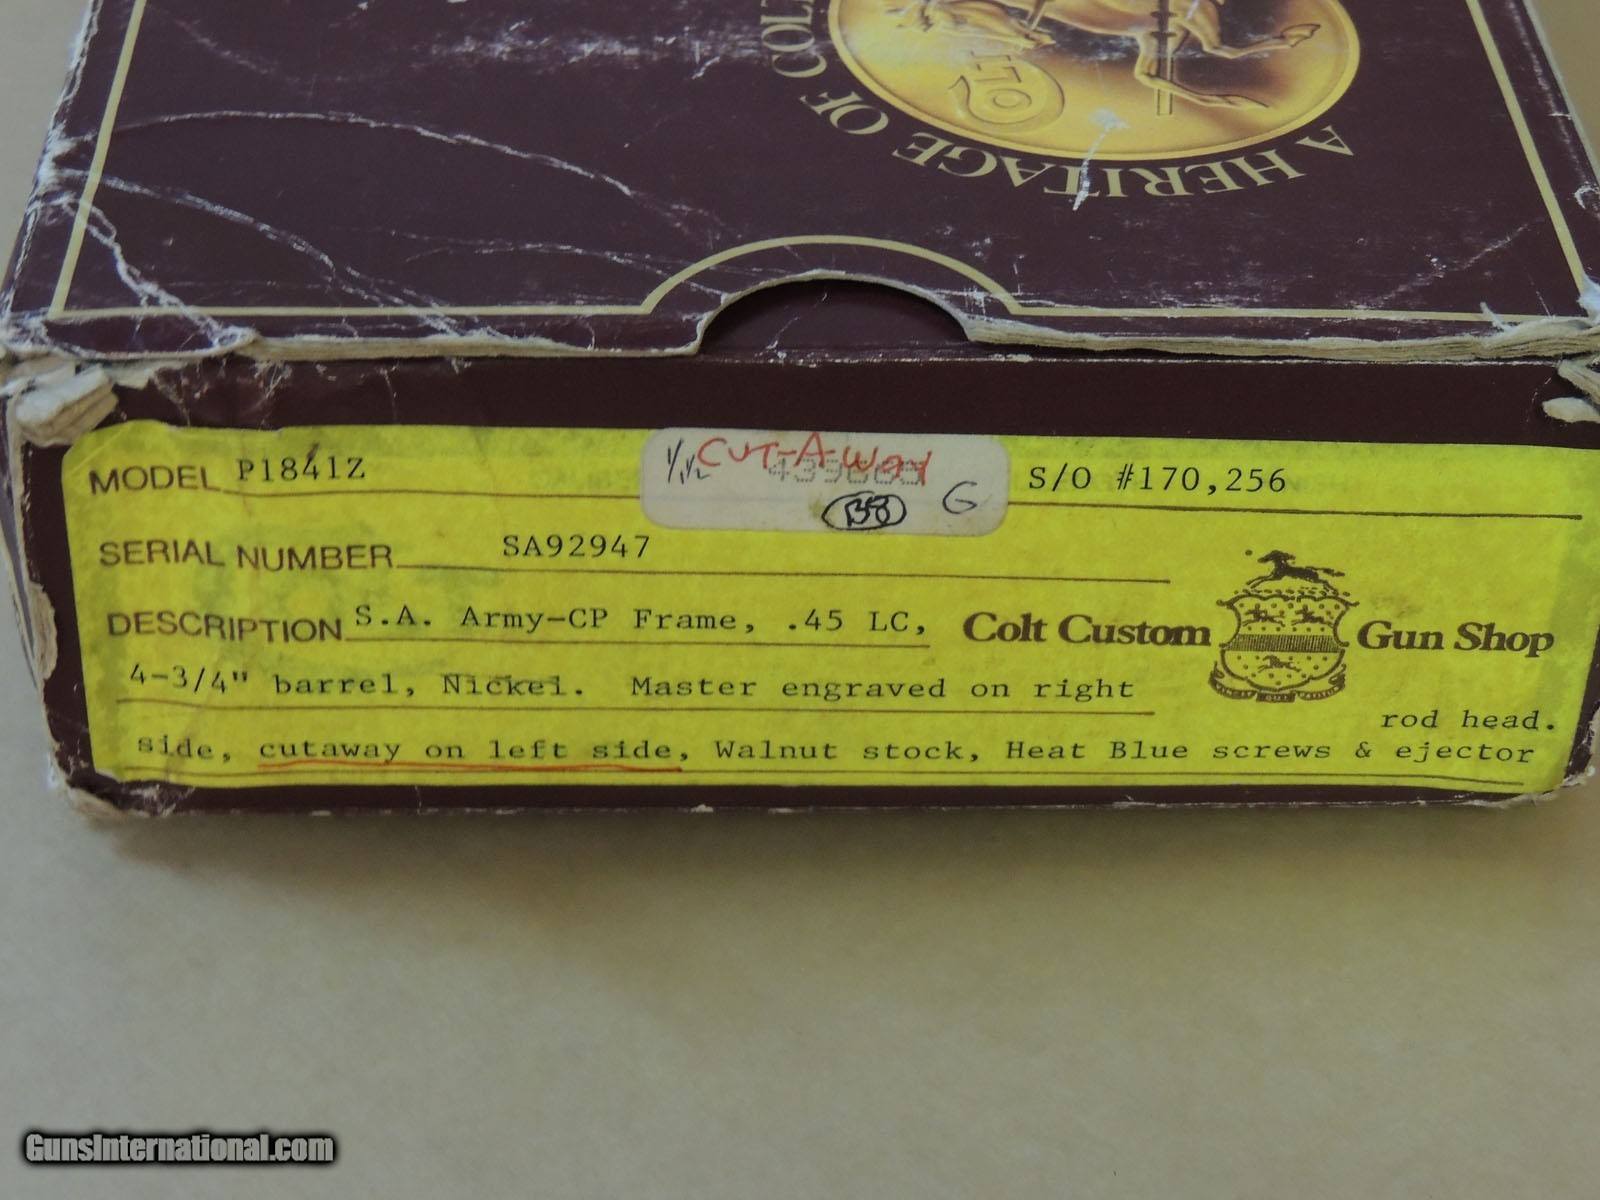 A HERITAGE OF COLT
COLT
CUT-A-Way
B8 G
MODEL P1841Z S/O #170,256
SERIAL NUMBER SA92947
DESCRIPTION S.A. Army-CP Frame, .45 LC,
Colt Custom Gun Shop
4-3/4" barrel, Nickel. Master engraved on right
rod head.
side, cutaway on left side, Walnut stock, Heat Blue screws & ejector
GunsInternational.com